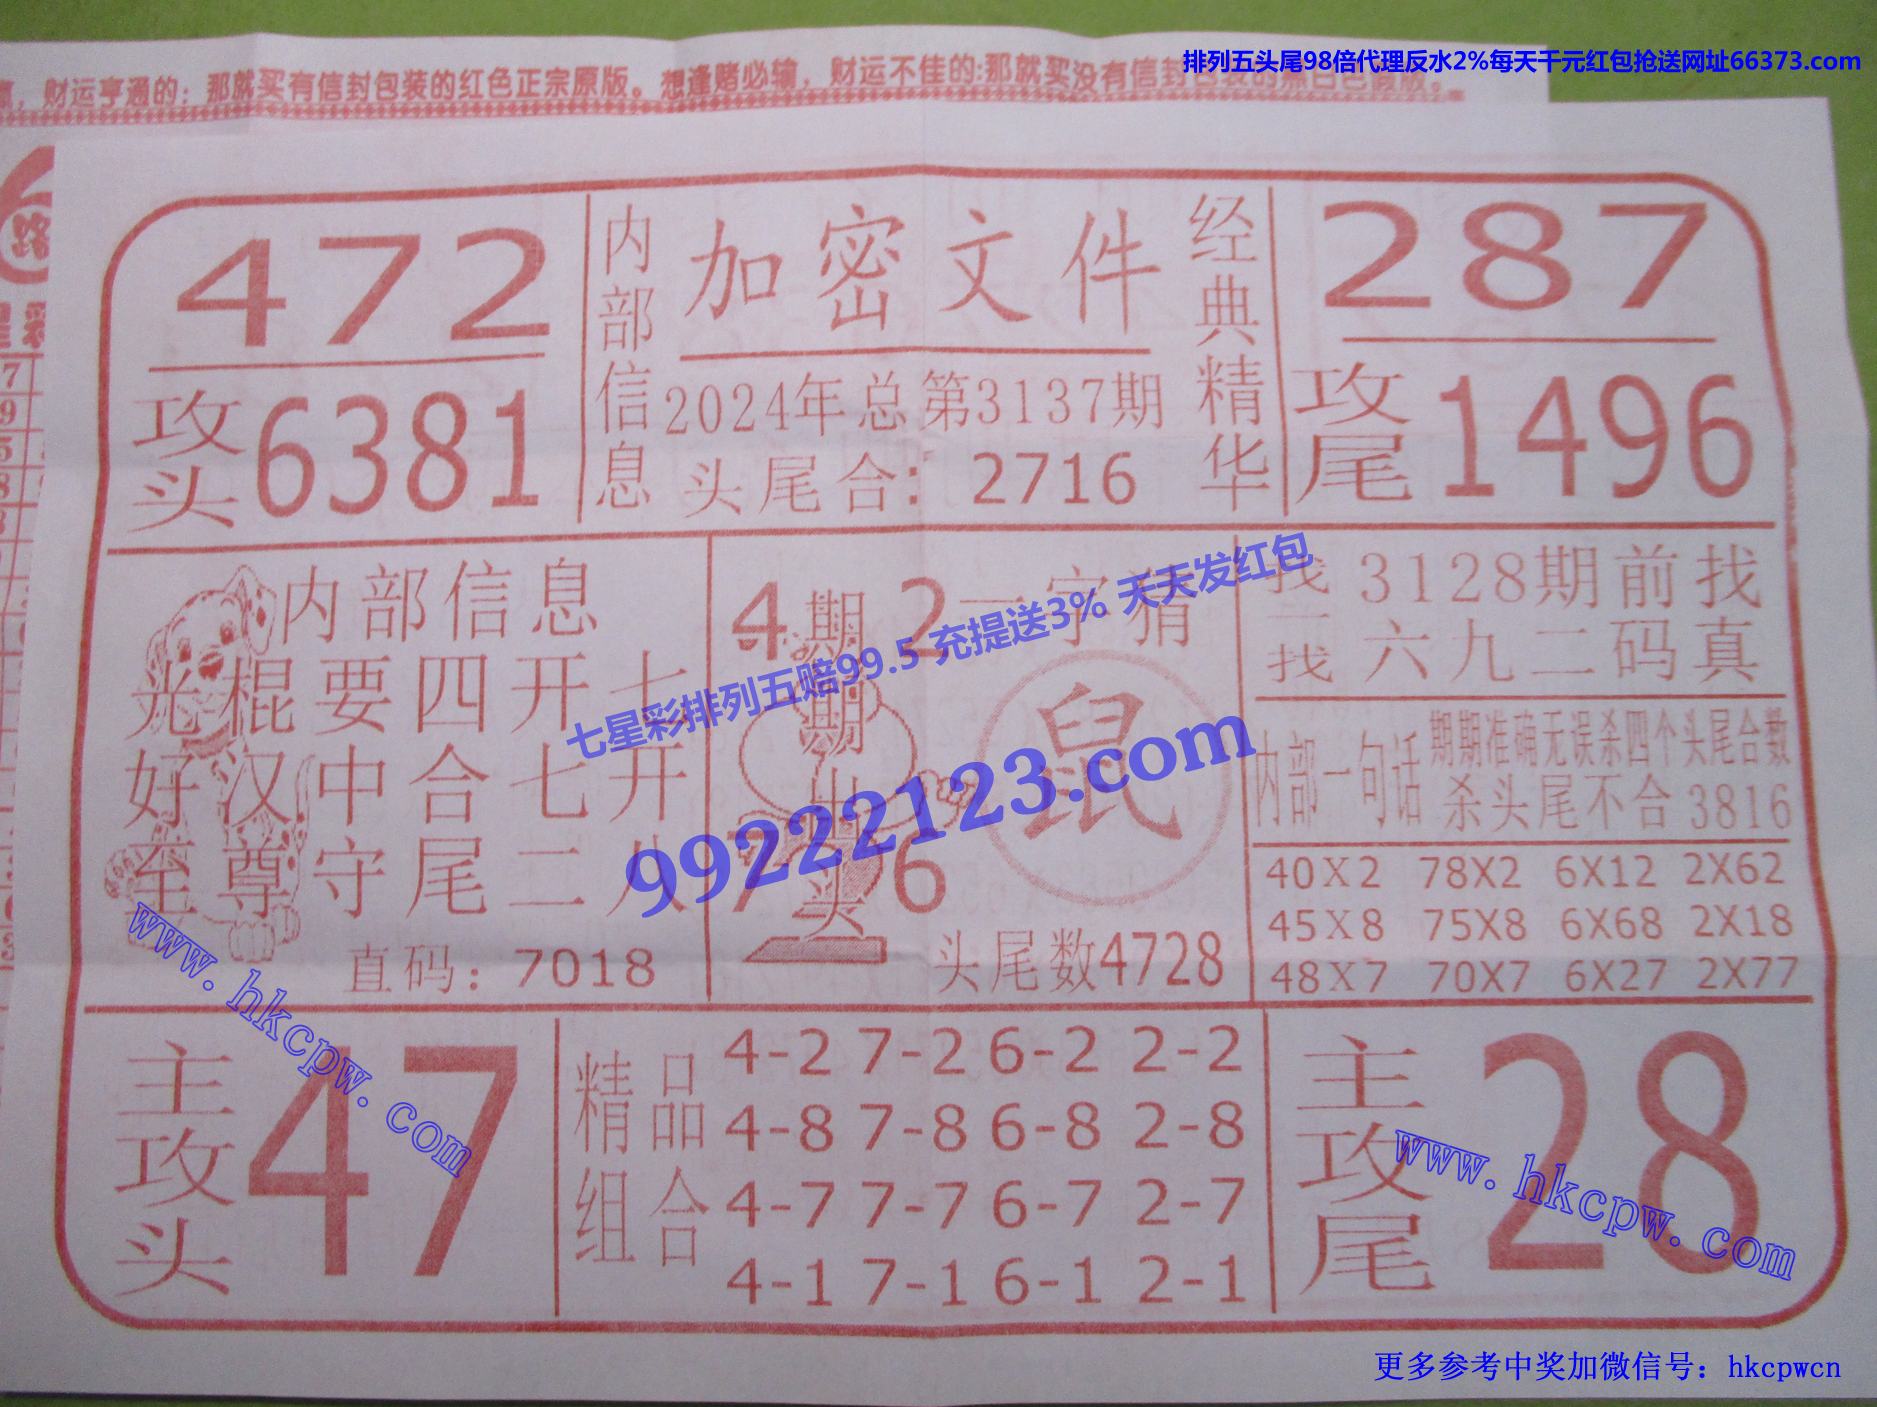 排列五头尾98倍代理反水2%每天千元红包抢送网址66373.com
赢，财运亨通的；那就买有信封包装的红色正宗原版。想逢赌必输，财运不佳的:那就买没有信封包装的黑白色假版。
路
星彩
472
攻头 6381
内部信息
加密文件
2024年总第3137期
头尾合：2716
经典精华
287
攻尾 1496
内部信息
光棍要四开七
好汉中合七开
至尊守尾二八
直码：7018
4 2
7 6
期期出头
一字猜
鼠
头尾数4728
找一找
3128期前找
六九二码真
内部一句话
期期准确无误杀四个头尾合数
杀头尾不合3816
40X2 78X2 6X12 2X62
45X8 75X8 6X68 2X18
48X7 70X7 6X27 2X77
七星彩排列五赔99.5 充提送3% 天天发红包
99222123.com
www.hkcpw.com
主攻头 47
精品组合
4-2 7-2 6-2 2-2
4-8 7-8 6-8 2-8
4-7 7-7 6-7 2-7
4-1 7-1 6-1 2-1
主攻尾 28
www.hkcpw.com
更多参考中奖加微信号：hkcpwcn